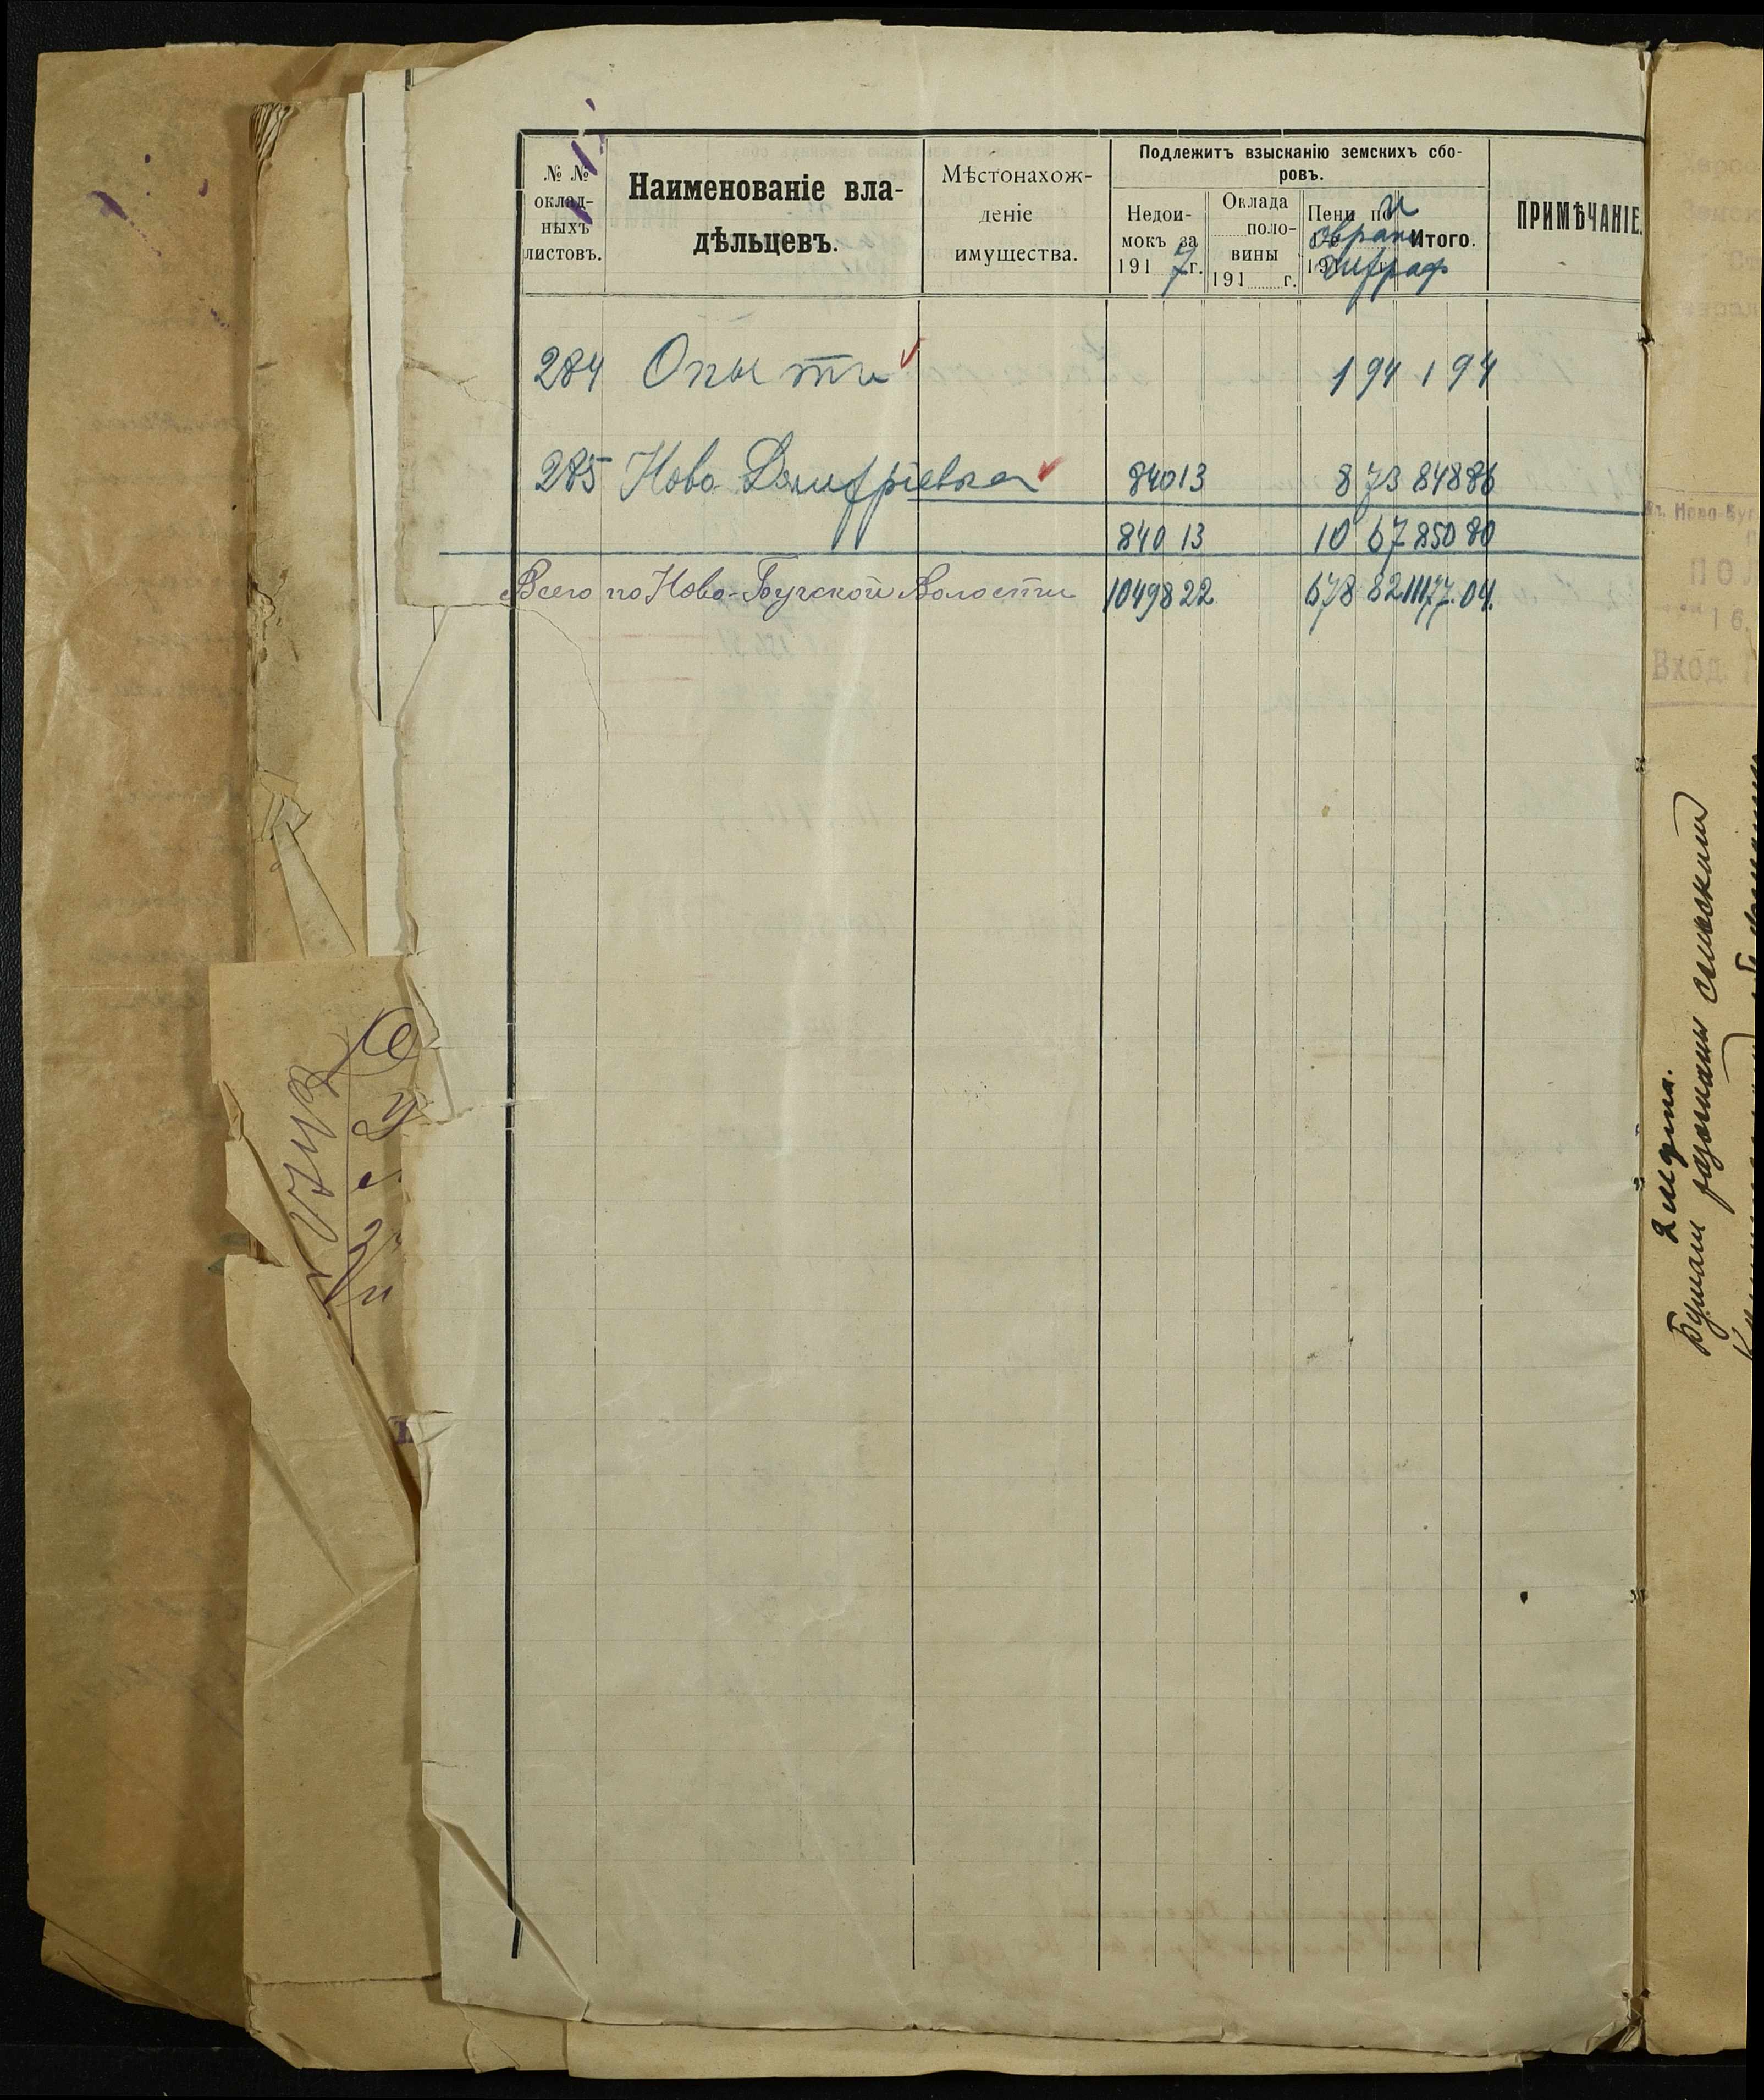 № №
оклад-
ныхъ
листовъ.
Наименованіе вла-
дѣльцевъ.
Мѣстонахож-
деніе
имущества.
Подлежитъ взысканію земскихъ сбо-
ровъ.
Недои-
мокъ за
1917 г.
Оклада
поло-
вины
191 г.
Пени по и
страх
штраф
Итого.
ПРИМѢЧАНІЕ.
284 Опыты 1 94 1 94
285 Ново Димитріевка 840 13 8 73 848 86
840 13 10 67 850 80
Всего по Ново-Бугской Волости 10498 22 678 82 11177.04.
2 марта.
Бумаги
сельскии
Вход.